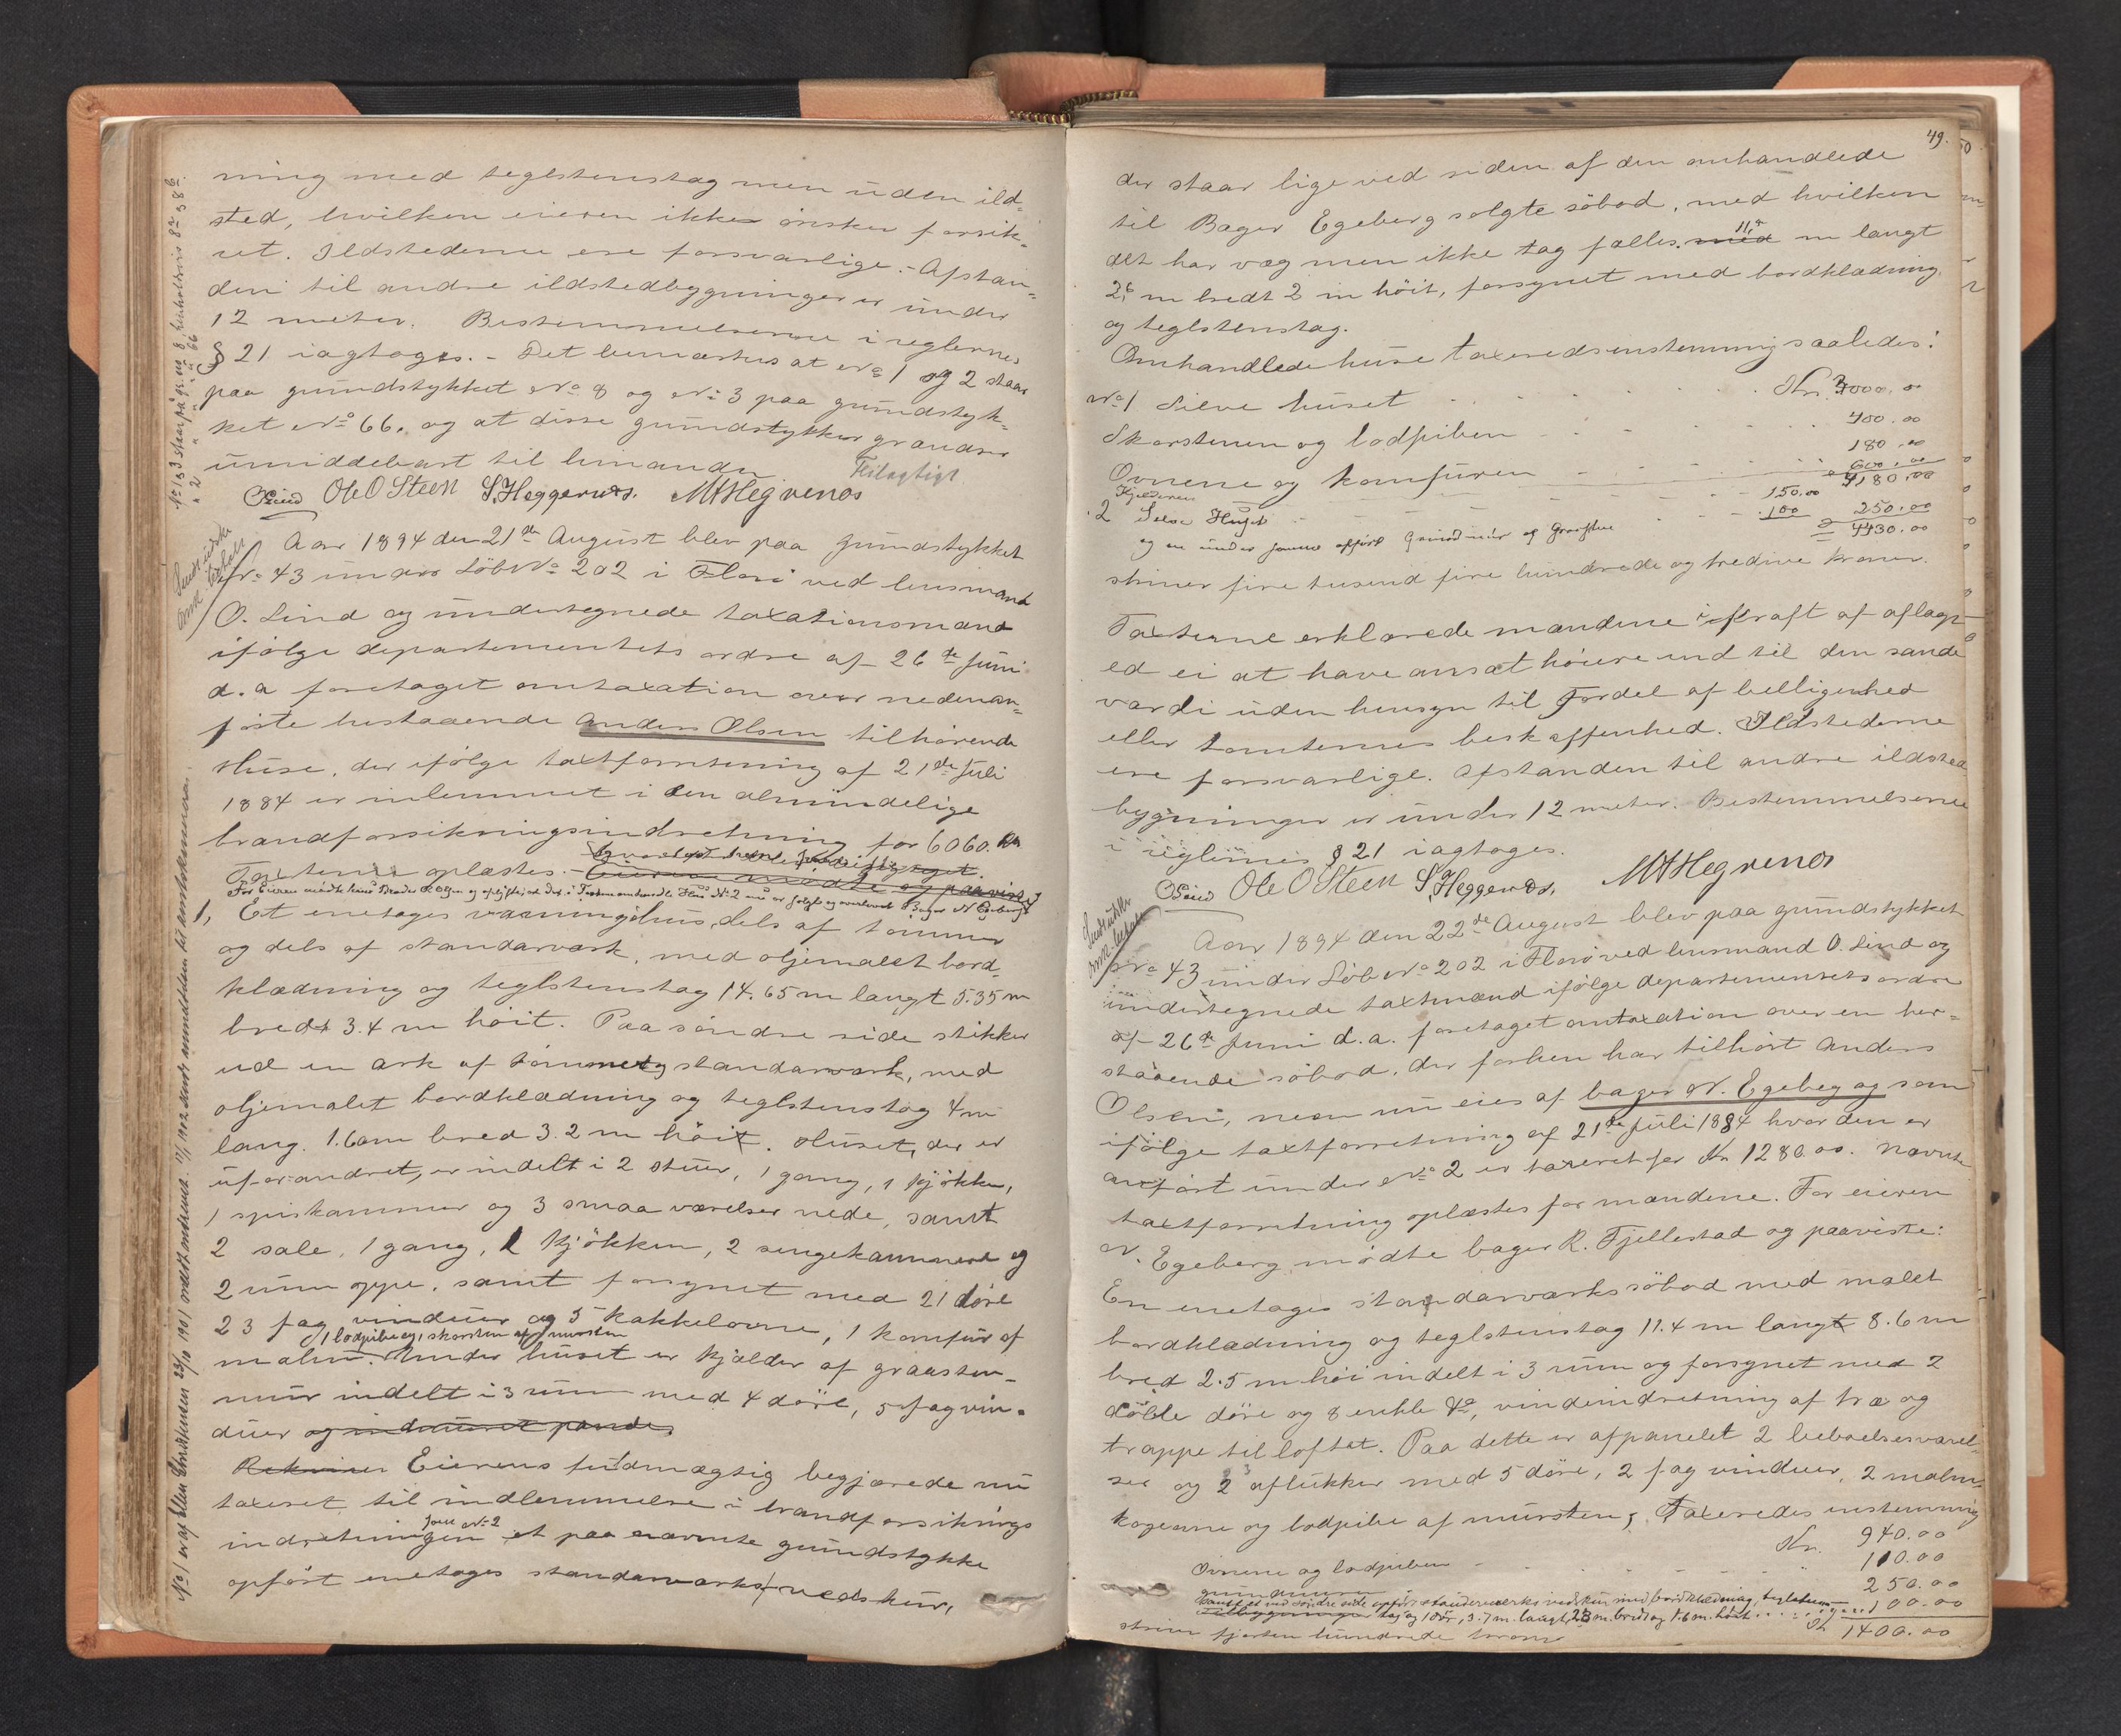 ning med teglstenstag men uden ild-
sted, hvilken eieren ikke ønsker forsik-
ret. Ildstederne ere forsvarlige.- Afstan-
den til andre ildstedbygninger er under
12 meter. Bestemmelserne i reglernes
§ 21 iagtoges. - Det bemærkes at No 1 og 2 staar
paa grundstykket No 8 og No 3 paa grundstyk-
ket No 66, og at disse grundstykker grændser
umiddelbart til hinanden
OLind Ole O Steen S. Heggenes. M H Hegrenæs
Aar 1894 den 21de August blev paa grundstykket
No 43 under Løb No 202 i Florø ved lensmand
O. Lind og undertegnede taxationsmænd
ifølge departementets ordre af 26de Juni
d. a foretaget omtaxation over nedenan-
førte bestaaende Anders Olsen tilhørende
Huse, der ifølge taxtforretning af 21de Juli
1884 er indlemmet i den almindelige
brandforsikringsindretning for 6060. Kr
Taxten oplæstes. - Eieren mødte og paaviste
For Eieren mødte hans Broder R. Olsen og oplyste, at det i Taxten omhandlede Hus No 2 nu er solgt og overlevert Bager N Egeberg
1, Et enetages vaaningshus, dels af tømmer
og dels af standarværk, med oljemalet bord-
klædning og teglstenstag 14.65 m langt 5.35 m
bredt 3.4 m høit. Paa søndre side stikker
ud en ark af tømmer og standarværk, med
oljemalet bordklædning og teglstenstag 4 m
lang. 1.60m bred 3.2 m høit. Huset, der er
uforandret, er indelt i 2 stuer, 1 gang, 1 kjøkken,
1 spiskammer og 3 smaa værelser nede, samt
2 sale, 1 gang, 1 kjøkken, 2 sengekammere og
2 rum oppe, samt forsynet med 21 døre
23 fag vinduer og 5 kakkelovne, 1 komfur af
1 lodpibe og 1 skorsten af mursten
malm. Under huset er kjælder af graasten-
mur indelt i 3 rum med 4 døre, 5 fag vin-
duer og indmuret pande.
Eierens fuldmægtig begjærede nu
taxeret til indlemmelse i brandforsikrings
som No 2
indretningen et paa nævnte grundstykke
opført enetages standarværks vedskur,
49.
der staar lige ved siden af den omhandlede
til Bager Egeberg solgte søbod, med hvilken
det har væg men ikke tag fælles. med 11,4 m langt
2,6 m bredt 2 m høit, forsynet med bordklædning
og teglstenstag.
Omhandlede huse taxeredes enstemmig saaledes:
No 1 Selve huset Kr. 3000.00
Skorstenen og lodpiben 400.00
Ovnene og komfuren 180.00
Kjelderen 600.00
4180.00
2 Selve Huset 150.00
og en under samme opført Grundmur af Graasten 100 250.00
4430.00
skriver fire tusend fire hundrede og tredive kroner.
Taxterne erklærede mændene i kraft af aflagt
ed ei at have ansat høiere end til den sande
værdi uden hensyn til Fordel af belligenhed
eller tomternes beskaffenhed. Ildstederne
ere forsvarlige. Afstanden til andre ildsted
bygninger er under 12 meter. Bestemmelserne
i reglernes § 21 iagtoges.
OLind Ole O Steen S. Heggenes. M H Hegrenæs
Aar 1894 den 22de August blev paa grundstykket
No 43 under Løb No 202 i Florø ved lensmand O. Lind og
undertegnede taxtmænd ifølge departementets ordre
af 26de Juni d. a. foretaget omtaxation over en her-
staaende søbod, der forhen har tilhørt Anders
Olsen, men nu eies af bager N. Egeberg og som
ifølge taxtforretning af 21de Juli 1884 hvor den er
anført under No 2 er taxeret for Kr 1280.00. Nævnte
taxtforretning oplæstes for mændene. For eieren
N. Egeberg mødte bager R. Fjellestad og paaviste:
En enetages standarværks søbod med malet
bordklædning og teglstenstag 11.4 m langt 8.6 m
bred 2.5 m høi indelt i 3 rum og forsynet med 2
doble døre og 8 enkle do, vindeindretning af træ og
trappe til loftet. Paa dette er afpanelet 2 beboelsesværel-
ser og 2 aflukker med 5 døre, 2 fag vinduer, 2 malm-
kogeovne og lodpibe af mursten, Taxeredes enstemmig
Kr. 940.00
Ovnene og lodpiben 110.00
grundmuren 250.00
Samt et ved søndre side opført standerværks vedskur med bordklædning, teglstens-
tag og 1 dør, 3.7 m. langt, 2.3 m. bredt og 1.6 m. høit 100.00
Kr 1400.00
skriver fjorten hundrede kroner